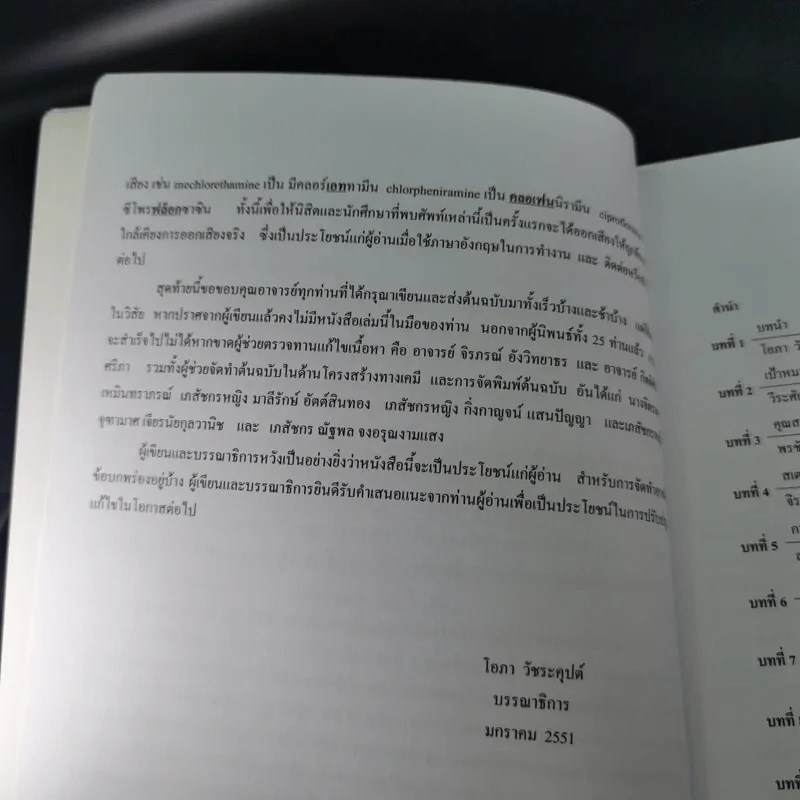 เสียง เช่น mechlorethamine เป็น มีคลอร์เอททามีน chlorpheniramine เป็น คลอเฟนนิรามีน
ซิโพรฟล็อกซาซิน ทั้งนี้เพื่อให้นิสิตและนักศึกษาที่พบศัพท์เหล่านี้เป็นครั้งแรกจะได้ออกเสียงให้
ใกล้เคียงการออกเสียงจริง ซึ่งเป็นประโยชน์แก่ผู้อ่านเมื่อใช้ภาษาอังกฤษในการทำงาน และ
ต่อไป
สุดท้ายนี้ขอขอบคุณอาจารย์ทุกท่านที่ได้กรุณาเขียนและส่งต้นฉบับมาทั้งเร็วบ้างและช้าบ้าง
ในวิสัย หากปราศจากผู้เขียนแล้วคงไม่มีหนังสือเล่มนี้ในมือของท่าน นอกจากผู้นิพนธ์ทั้ง 25 ท่านแล้ว
จะสำเร็จไปไม่ได้หากขาดผู้ช่วยตรวจทานแก้ไขเนื้อหา คือ อาจารย์ จิรภรณ์ อังวิทยาธร และ อาจารย์
ศรีภา รวมทั้งผู้ช่วยจัดทำต้นฉบับในด้านโครงสร้างทางเคมี และการจัดพิมพ์ต้นฉบับ อันได้แก่
เหมินทราภรณ์ เภสัชกรหญิง มาลีรักษ์ อัตต์สินทอง เภสัชกรหญิง กิ่งกาญจน์ แสนปัญญา
จุฑามาศ เจียรนัยกุลวานิช และ เภสัชกร ณัฐพล จงอรุณงามแสง
ผู้เขียนและบรรณาธิการหวังเป็นอย่างยิ่งว่าหนังสือนี้จะเป็นประโยชน์แก่ผู้อ่าน
ข้อบกพร่องอยู่บ้าง ผู้เขียนและบรรณาธิการยินดีรับคำเสนอแนะจากท่านผู้อ่านเพื่อเป็นประโยชน์ในการ
แก้ไขในโอกาสต่อไป
โอภา วัชระคุปต์
บรรณาธิการ
มกราคม 2551
คำนำ
บทที่ 1 บทนำ
โอภา
บทที่ 2
บทที่ 3
บทที่ 4
บทที่ 5
บทที่ 6
บทที่ 7
บทที่
บทที่